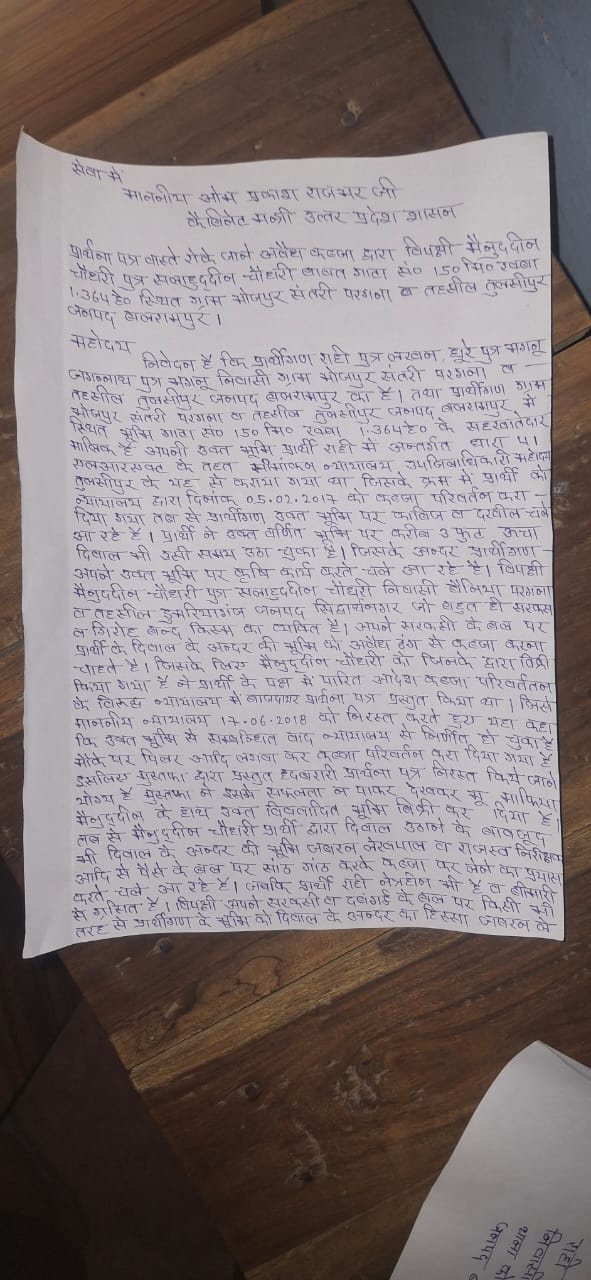 सेवा में
माननीय ओम प्रकाश राजभर जी
कैबिनेट मन्त्री उत्तर प्रदेश शासन
प्रार्थना पत्र वास्ते रोके जाने अवैध कब्जा द्वारा विपक्षी मैनुद्दीन
चौधरी पुत्र सलाहुद्दीन चौधरी बाबत गाटा सं० 150 मि० रकबा
1.364 हे० स्थित ग्राम भोजपुर संतरी परगना व तहसील तुलसीपुर
जनपद बलरामपुर।
महोदय
निवेदन है कि प्रार्थीगण राही पुत्र लखन, घूरे पुत्र भगनू
जगन्नाथ पुत्र भगनू निवासी ग्राम भोजपुर संतरी परगना व
तहसील तुलसीपुर जनपद बलरामपुर का है। तथा प्रार्थीगण ग्राम
भोजपुर संतरी परगना व तहसील तुलसीपुर जनपद बलरामपुर में
स्थित भूमि गाटा सं० 150 मि० रकबा 1.364 हे० के सहखातेदार
मालिक है अपनी उक्त भूमि प्रार्थी राही में अन्तर्गत धारा 41
एलआरएक्ट के तहत सीमांकन न्यायालय उपजिलाधिकारी महोदय
तुलसीपुर के यहां से कराया गया था जिसके क्रम में प्रार्थी को
न्यायालय द्वारा दिनांक 05.02.2017 को कब्जा परिवर्तन करा
दिया गया तब से प्रार्थीगण उक्त भूमि पर काबिज व दखील चले
आ रहे है। प्रार्थी ने उक्त वर्णित भूमि पर करीब 3 फुट ऊंचा
दिवाल भी उसी समय उठा चुका है। जिसके अन्दर प्रार्थीगण
अपने उक्त भूमि पर कृषि कार्य करते चले आ रहे है। विपक्षी
मैनुद्दीन चौधरी पुत्र सलाहुद्दीन चौधरी निवासी परगना
व तहसील डुमरियागंज जनपद सिद्धार्थनगर जो बहुत ही सरकस
व गिरोह बन्द किस्म का व्यक्ति है। अपने सरकसी के बल पर
प्रार्थी के दिवाल के अन्दर की भूमि को अवैध ढंग से कब्जा करना
चाहते है। जिसके लिए मैनुद्दीन चौधरी को जिनके द्वारा बिक्री
किया गया है ने प्रार्थी के पक्ष में पारित आदेश कब्जा परिवर्तन
के विरूद्ध न्यायालय में प्रार्थना पत्र प्रस्तुत किया था। जिसे
माननीय न्यायालय 17.06.2018 को निरस्त करते हुए यह कहा
कि उक्त भूमि से सम्बन्धित वाद न्यायालय से निर्णित हो चुका है
मौके पर पिलर आदि लगवा कर कब्जा परिवर्तन करा दिया गया है
इसलिए मुस्तफा द्वारा प्रस्तुत हदबरारी प्रार्थना पत्र निरस्त किये जाने
योग्य है मुस्तफा ने इसमें सफलता न पाकर देखकर भू माफिया
मैनुद्दीन के हाथ उक्त विवादित भूमि बिक्री कर दिया है।
तब से मैनुद्दीन चौधरी प्रार्थी द्वारा दिवाल उठाने के बावजूद
भी दिवाल के अन्दर की भूमि जबरन लेखपाल व राजस्व निरीक्षक
आदि से पैसे के बल पर सांठ गांठ करके कब्जा कर लेने का प्रयास
करते चले आ रहे है। जबकि प्रार्थी राही नेत्रहीन भी है व बीमारी
से ग्रसित है। विपक्षी अपने सरकसी व दबंगई के बल पर किसी भी
तरह से प्रार्थीगण के भूमि को दिवाल के अन्दर का हिस्सा जबरन के
राही